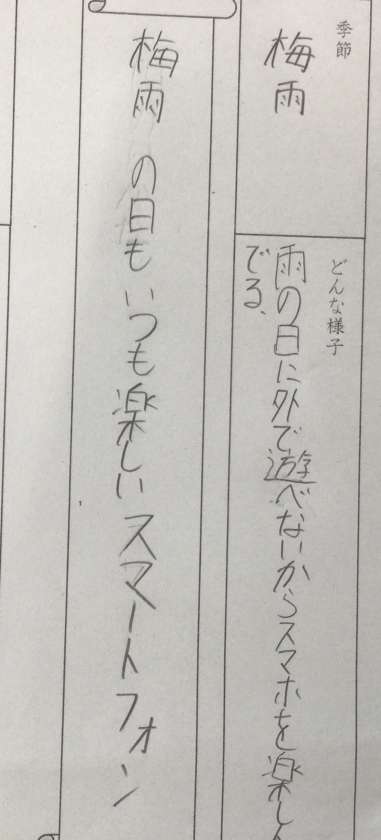 季節
梅雨
どんな様子
雨の日に外で遊べないからスマホを楽しん
でる、
梅雨の日もいつも楽しいスマートフォン